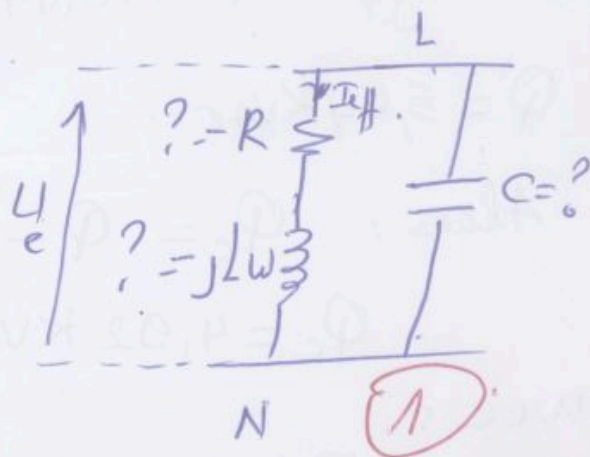 L
Ieff.
?=R
C=?
Ue
?=jLω
N
1